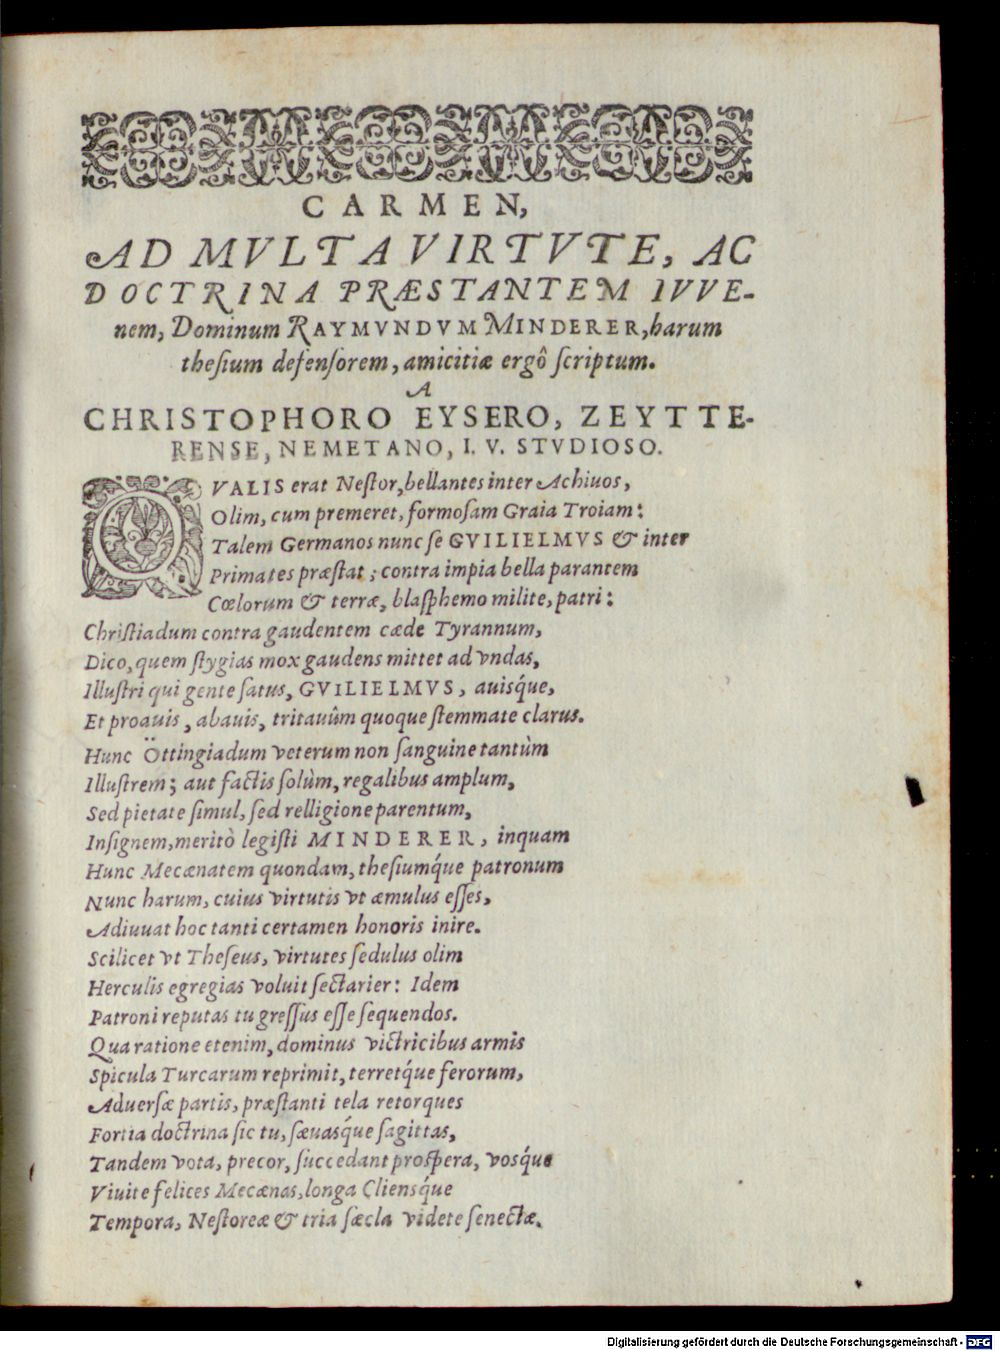 CARMEN,
AD MVLTA VIRTVTE, AC
DOCTRINA PRÆSTANTEM IVVE-
nem, Dominum RAYMVNDVM MINDERER, harum
theſium defenſorem, amicitiæ ergô ſcriptum.
A
CHRISTOPHORO EYSERO, ZEYTTE-
RENSE, NEMETANO, I. V. STVDIOSO.
QVALIS erat Neſtor, bellantes inter Achiuos,
Olim, cum premeret, formoſam Graia Troiam:
Talem Germanos nunc ſe GVILIELMVS & inter
Primates præſtat; contra impia bella parantem
Cœlorum & terræ, blaſphemo milite, patri:
Chriſtiadum contra gaudentem cæde Tyrannum,
Dico, quem ſtygias mox gaudens mittet ad vndas,
Illuſtri qui gente ſatus, GVILIELMVS, auisq́ue,
Et proauis, abauis, tritauûm quoque ſtemmate clarus.
Hunc Öttingiadum veterum non ſanguine tantùm
Illuſtrem; aut factis ſolùm, regalibus amplum,
Sed pietate ſimul, ſed relligione parentum,
Inſignem, meritò legiſti MINDERER, inquam
Hunc Mecænatem quondam, theſiumq́ue patronum
Nunc harum, cuius virtutis vt æmulus eſſes,
Adiuuat hoc tanti certamen honoris inire.
Scilicet vt Theſeus, virtutes ſedulus olim
Herculis egregias voluit ſectarier: Idem
Patroni reputas tu greſſus eſſe ſequendos.
Qua ratione etenim, dominus victricibus armis
Spicula Turcarum reprimit, terretq́ue ferorum,
Aduerſæ partis, præſtanti tela retorques
Fortia doctrina ſic tu, ſæuasq́ue ſagittas,
Tandem vota, precor, ſuccedant proſpera, vosq́ue
Viuite felices Mecænas, longa Cliensq́ue
Tempora, Neſtoreæ & tria ſæcla videte ſenectæ.
Digitalisierung gefördert durch die Deutsche Forschungsgemeinschaft - DFG